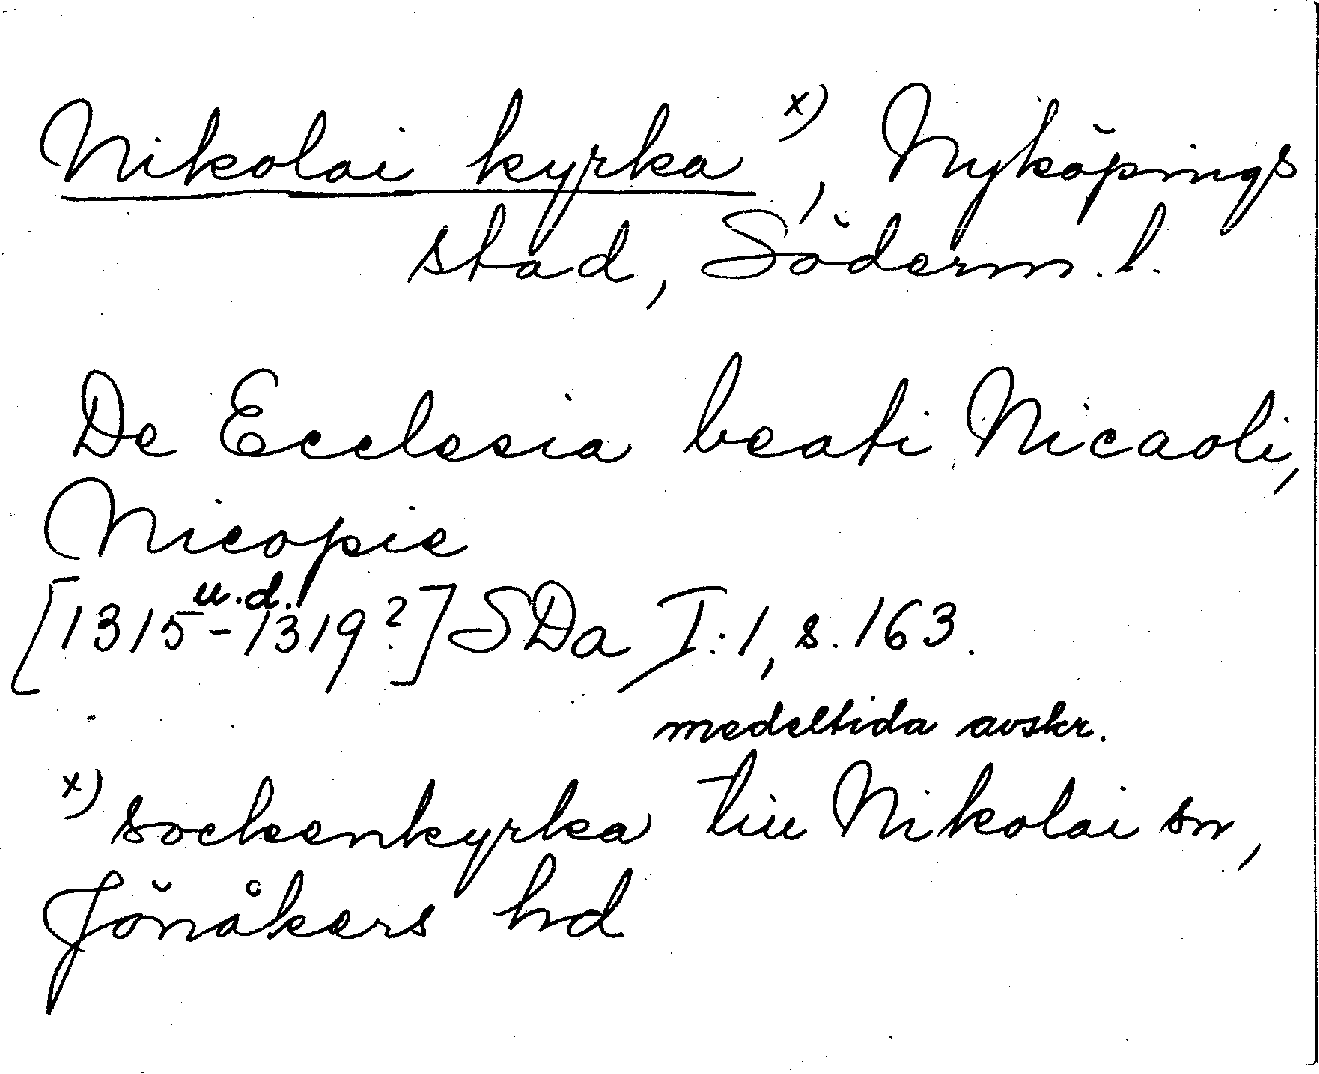 Nikolai kyrka x), Nyköpings
stad, Söderm. l.
De Ecclesia beati Nicaoli,
Nicopie
u.d.
[1315-1319?] SDa I:1, s. 163.
medeltida avskr.
x) sockenkyrka till Nikolai sn,
Jönåkers hd